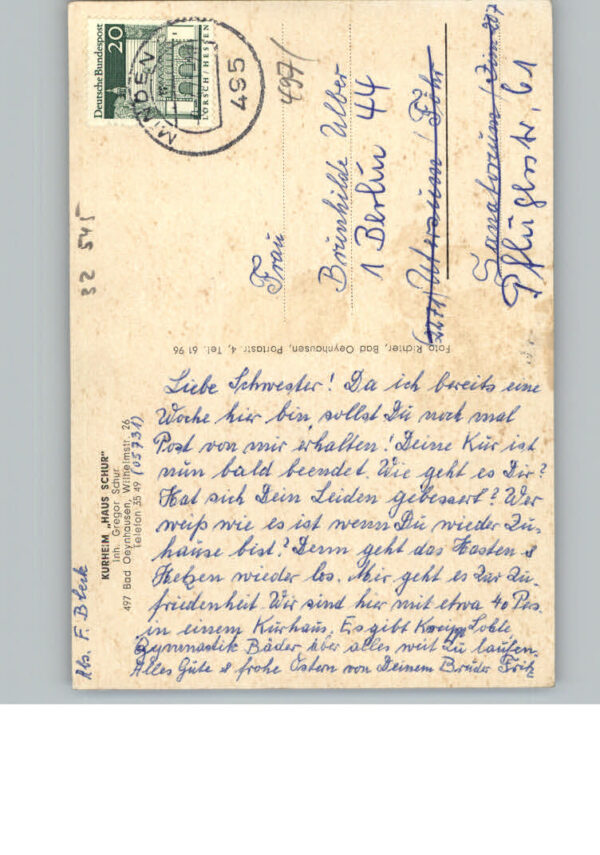 Abs. F. Bleck
KURHEIM „HAUS SCHUR"
Inh. Gregor Schur
497 Bad Oeynhausen, Wilhelmstr. 26
Telefon 35 49 (05731)
Liebe Schwester! Da ich bereits eine
Woche hier bin sollst Du noch mal
Post von mir erhalten! Deine Kur ist
nun bald beendet. Wie geht es Dir?
Hat sich Dein Leiden gebessert? Wer
weiß wie es ist wenn Du wieder Zu-
hause bist? Denn geht das Hasten &
Hetzen wieder los. Mir geht es zur Zu-
friedenheit. Wir sind hier mit etwa 40 Pers.
in einem Kurhaus. Es gibt Sohle
Gymnastik Bäder aber alles weit zu laufen.
Alles Gute & frohe Ostern von Deinem Bruder Fritz
Foto Richter, Bad Oeynhausen, Portastr. 4, Tel. 61 96
32 545
Deutsche Bundespost
20
LORSCH / HESSEN
MINDEN
495
497/
Frau
Brunhilde Ulber
1 Berlin 44
(2271) Utersum / Föhr
Sanatorium / Zim 207
Pflüglerstr. 61